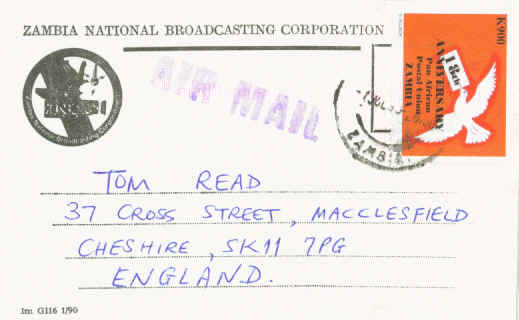 ZAMBIA NATIONAL BROADCASTING CORPORATION
AIR MAIL
K900
18th
ANNIVERSARY
Pan African
Postal Union
ZAMBIA
ZAMBIA
TOM READ
37 CROSS STREET, MACCLESFIELD
CHESHIRE, SK11 7PG
ENGLAND.
1m G116 1/90